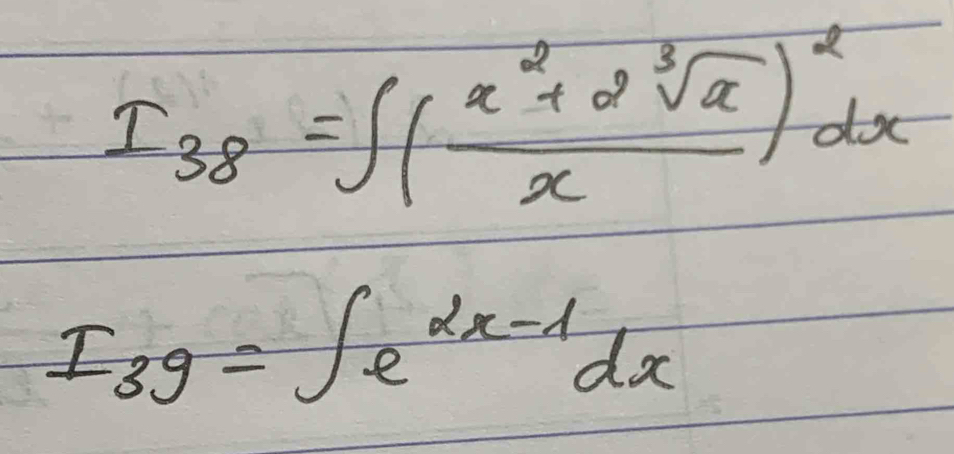 I₃₈ = ∫ ( (x² + 2 ∛x) / x )² dx
I₃₉ = ∫ e^(2x-1) dx